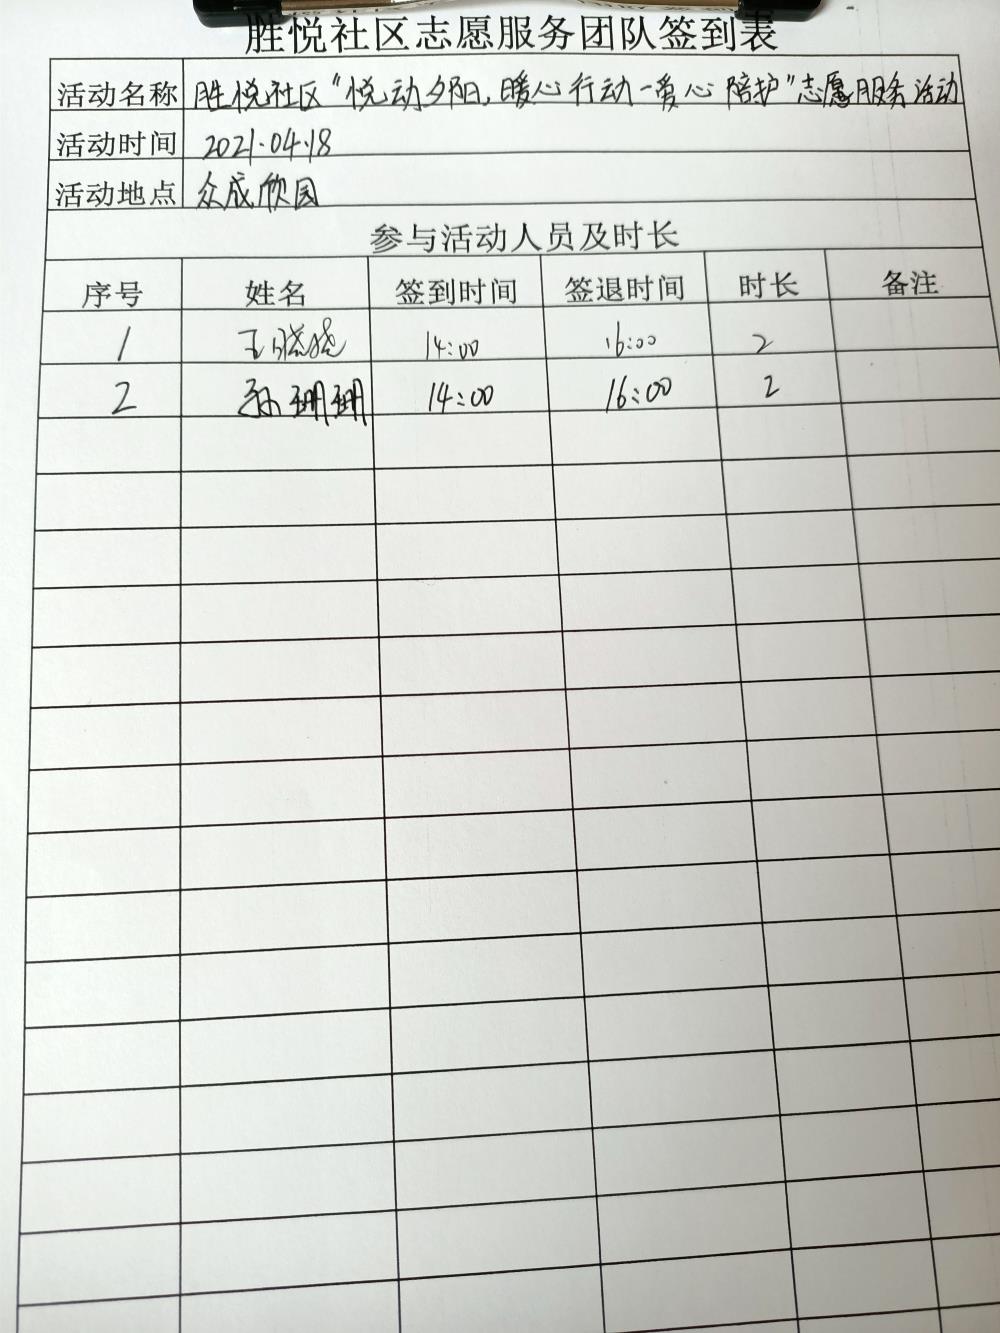 胜悦社区志愿服务团队签到表
活动名称 胜悦社区“悦动夕阳,暖心行动-爱心陪护”志愿服务活动
活动时间 2021.04.18
活动地点 众成欣园
参与活动人员及时长
序号 姓名 签到时间 签退时间 时长 备注
1 王晓晓 14:00 16:00 2
2 孙珊珊 14:00 16:00 2